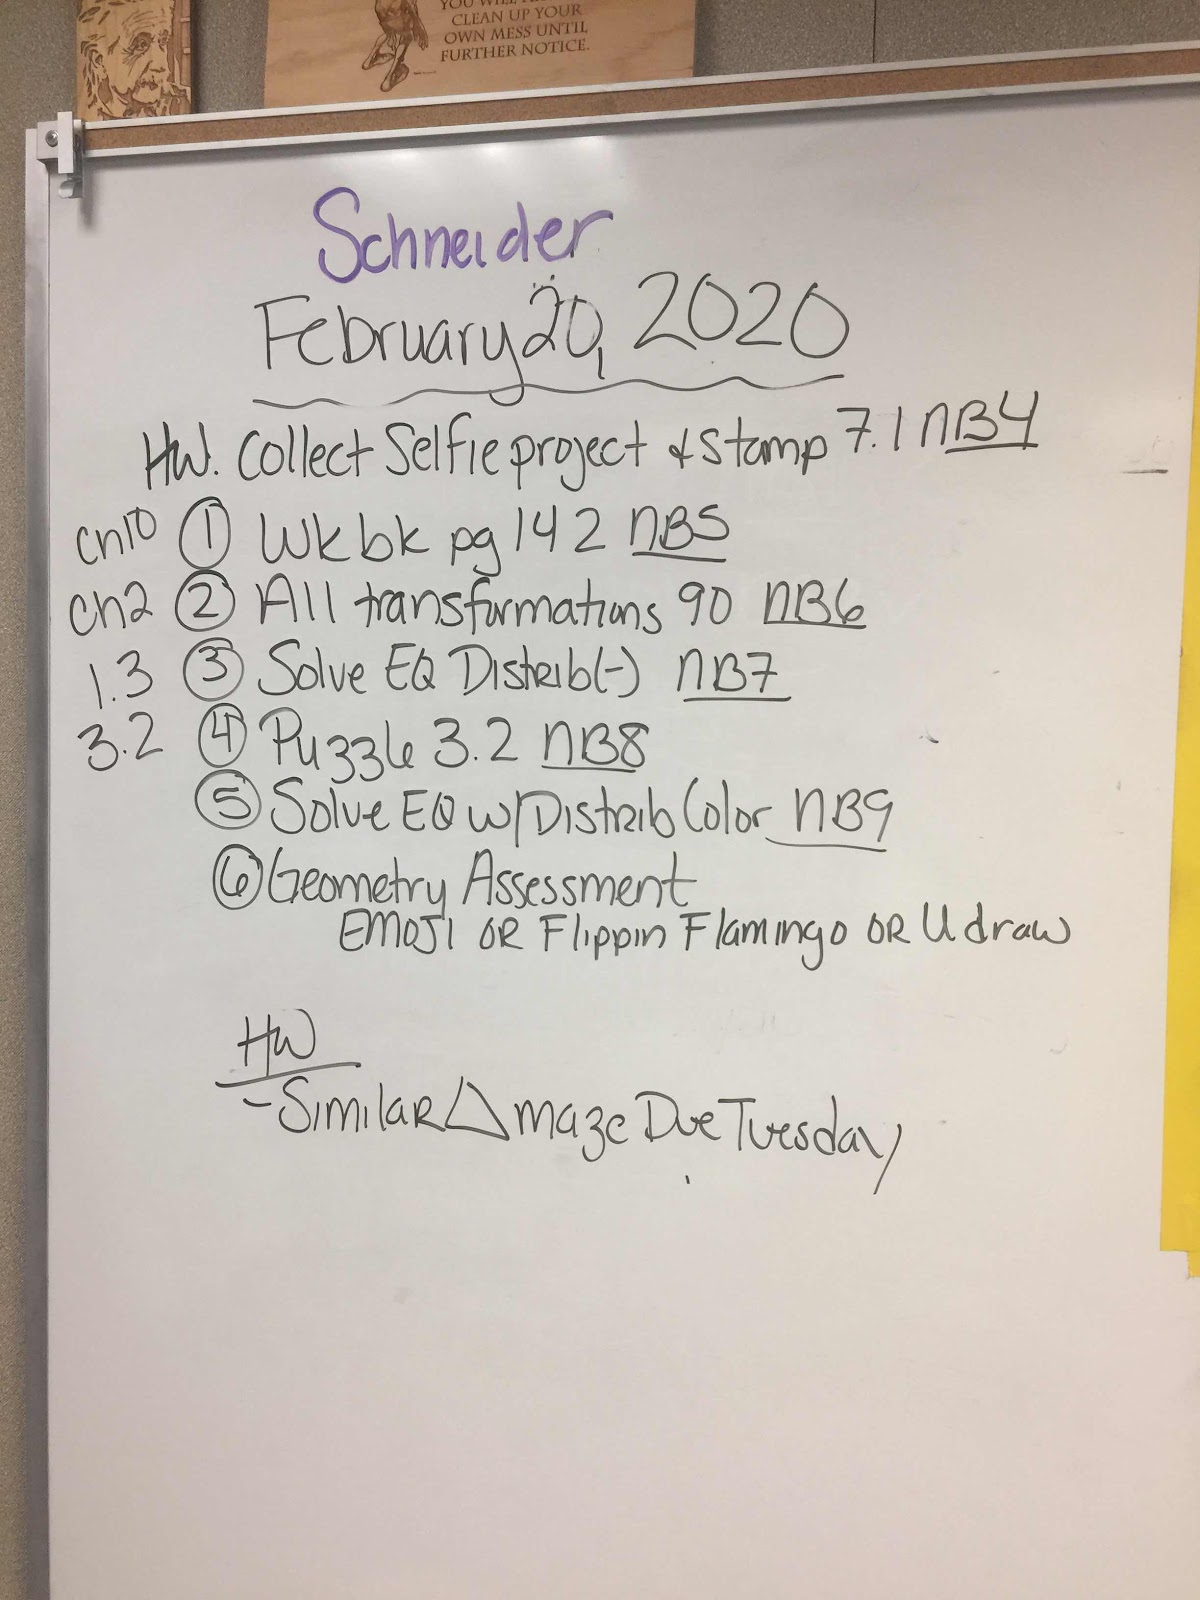 CLEAN UP YOUR
OWN MESS UNTIL
FURTHER NOTICE.
Schneider
February 20, 2020
HW. Collect Selfie project & stamp 7.1 NB4
Cn10 ① Wkbk pg 142 NB5
Cn2 ② All transformations 90 NB6
1.3 ③ Solve EQ Distrib(-) NB7
3.2 ④ Puzzle 3.2 NB8
⑤ Solve EQ w/Distrib Color NB9
⑥ Geometry Assessment
EMOJI OR Flippin Flamingo OR U draw
HW
- Similar △ maze Due Tuesday